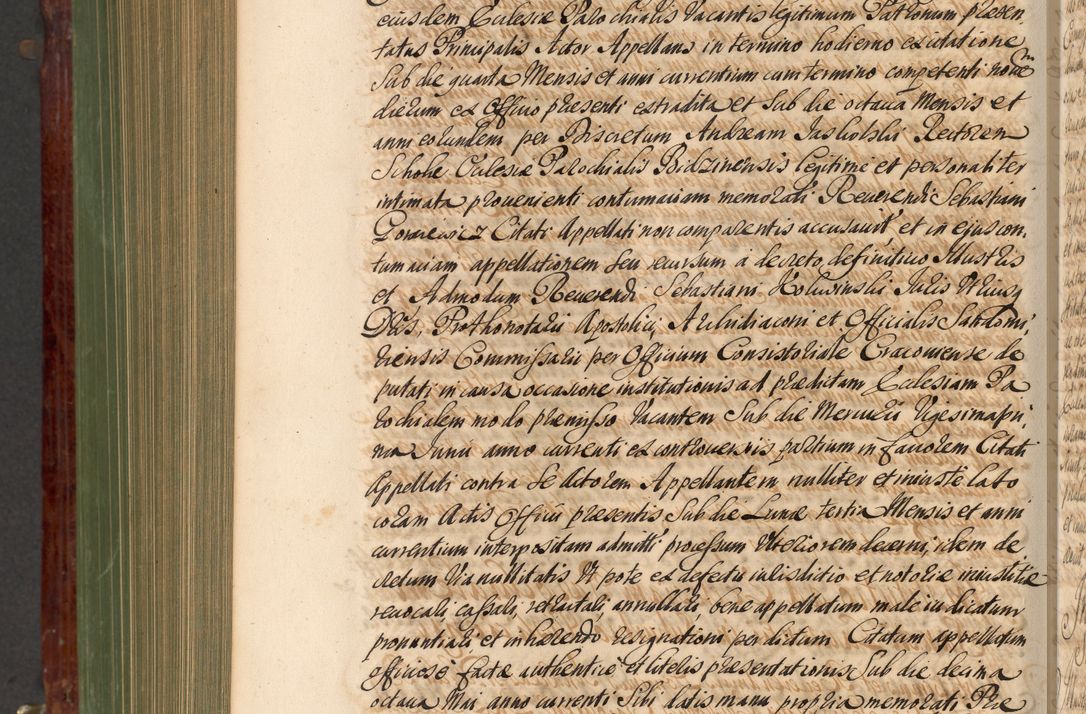 eiusdem Ecclesiæ Parochialis Vacantis legitimum Patronum præsen,
tatus Principalis Actor Appellans in termino hodierno ex citatione
Sub die quarta Mensis et anni currentium cum termino competenti nove
dierum ex Officio præsenti extradita et Sub die octava Mensis et
anni eorundem per Discretum Andream Jaskolski Rectorem
Scholæ Ecclesiæ Parochialis Bidzinensis legitime et personaliter
intimata provenienti contumaciam memorati Reverendi Sebastiani
Citati Appellati non comparentis accusavit et in ejus con,
tumaciam appellationem seu recursum à decreto definitivo Illustris
et Admodum Reverendi Sebastiani Juris Utriusq
Dris, Prothonotarii Apostolici, Archidiaconi et Officialis Sandomi,
riensis Commissarii per Officium Consistoriale Cracoviense de
putati in causa occasione institutionis ad prædictam Ecclesiam Pa
rochialem modo præmisso Vacantem Sub die Mercurii Vigesima pri,
ma Junii anno currenti ex controversiis partium in favorem Citati
Appellati contra Se Actorem Appellantem nulliter et iniuste lato
coram Actis Officii præsentis Sub die Lunæ tertia Mensis et anni
currentium interpositam admitti processum Ulteriorem decerni, idem de
cretum Via nullitatis Ut pote ex defectu iurisditio et notoriæ iniustitiæ
revocari, cassari, retractari, annullari, bene appellatum male iudicatum
pronuntiari, et inhærendo resignationi per dictum Citatum appellatum
officiose factæ authenticæ et litteris præsentationis Sub die decima
octava Mai anno currenti Sibi datis manu propria memorati Præ